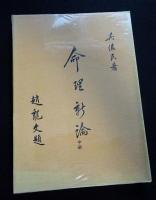 吳俊民著
命理新論
中冊
趙龍文題